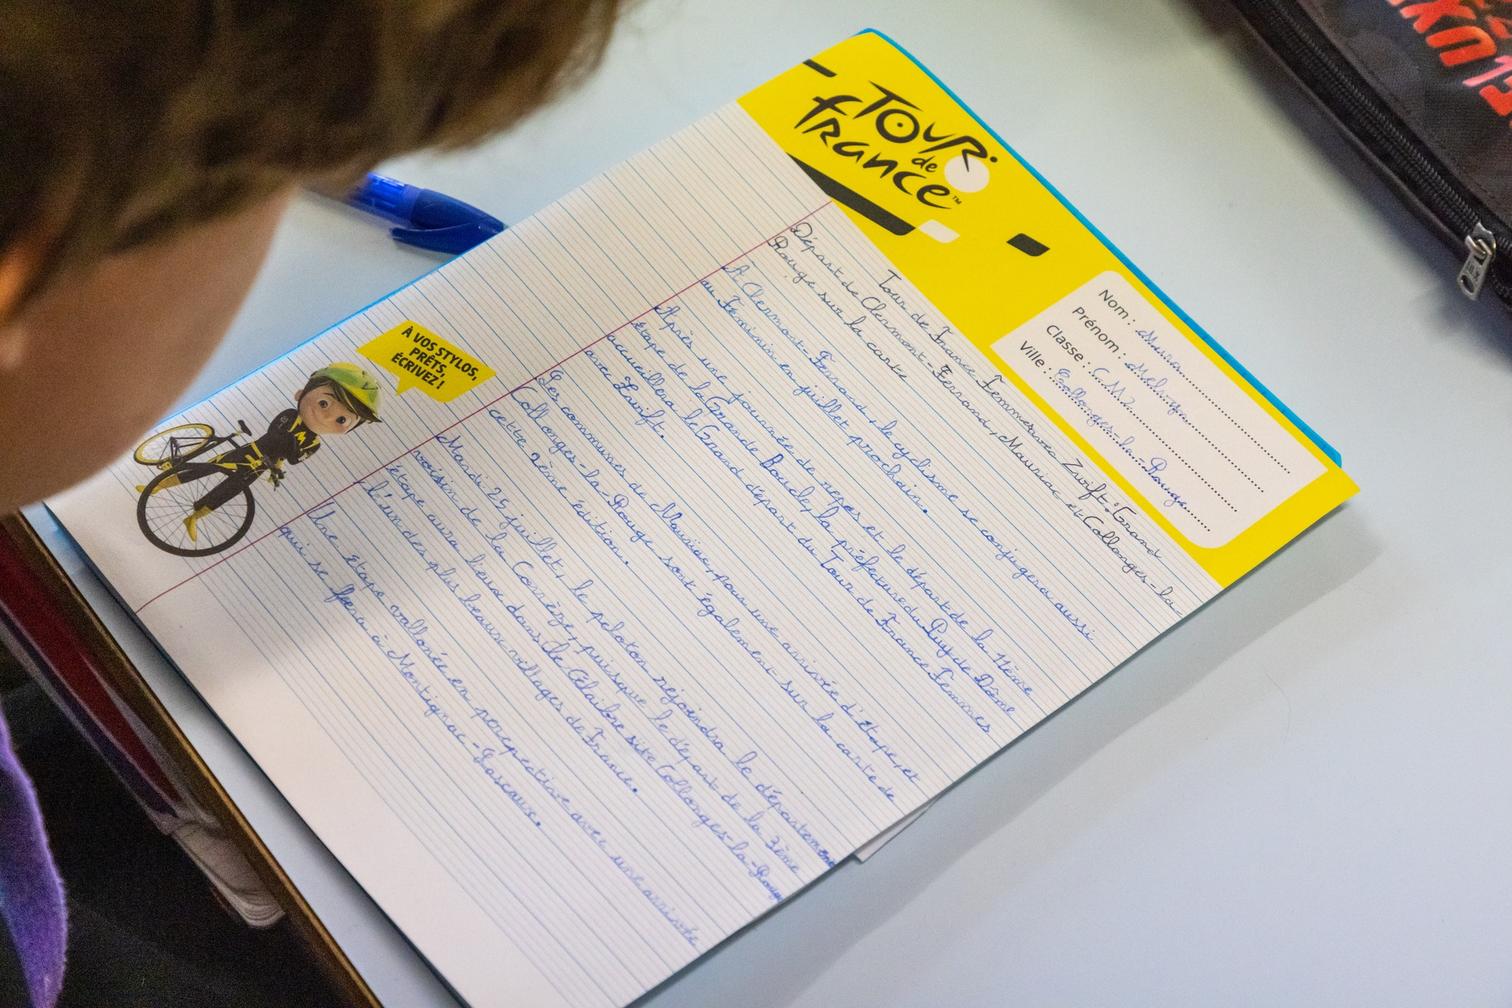 TOUR
de
France™
Nom :
Prénom :
Classe : CM2
Ville : Collonges-la-Rouge
Tour de France Femmes avec Zwift : Grand
Départ de Clermont-Ferrand, Mauriac et Collonges-la-
Rouge sur la carte
À Clermont-Ferrand, le cyclisme se conjuguera aussi
au Féminin en juillet prochain.
Après une journée de repos et le départ de la 11ème
étape de la Grande Boucle, la préfecture du Puy de Dôme
accueillera le Grand départ du Tour de France Femmes
avec Zwift.
Les communes de Mauriac, pour une arrivée d'étape, et
Collonges-la-Rouge sont également sur la carte de
cette 2ème édition.
Mardi 25 juillet, le peloton rejoindra le département
voisin de la Corrèze, puisque le départ de la 3ème
étape aura lieu dans le site Collonges-la-Rouge
l'un des plus beaux villages de France.
Une étape vallonée en perspective avec une arrivée
qui se fera à Montignac-Lascaux.
À VOS STYLOS,
PRÊTS,
ÉCRIVEZ !